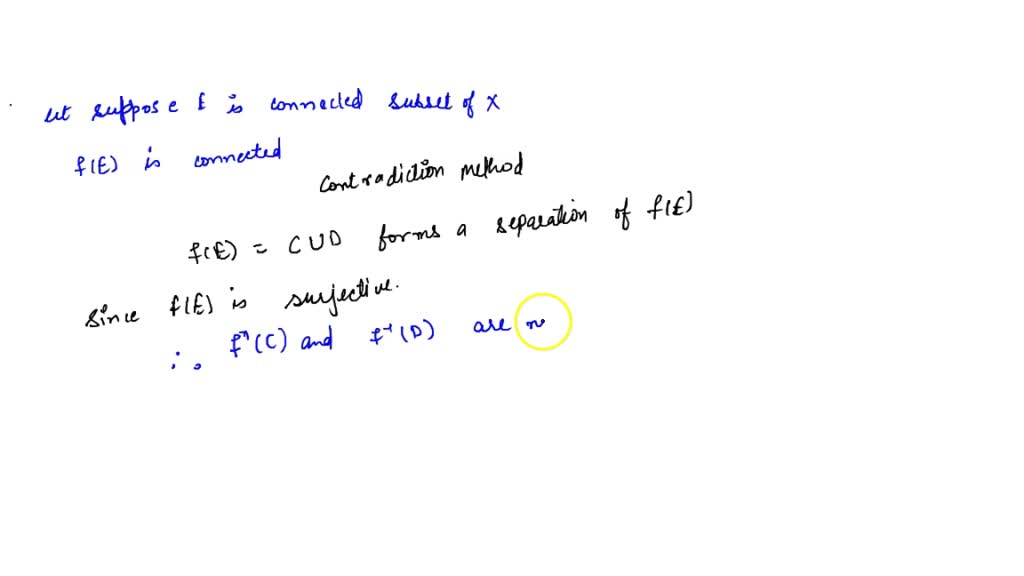 let suppose E is connected subset of X
f(E) is connected
contradiction method
f(E) = C U D forms a separation of f(E)
Since f(E) is surjective.
∴ f⁻¹(C) and f⁻¹(D) are